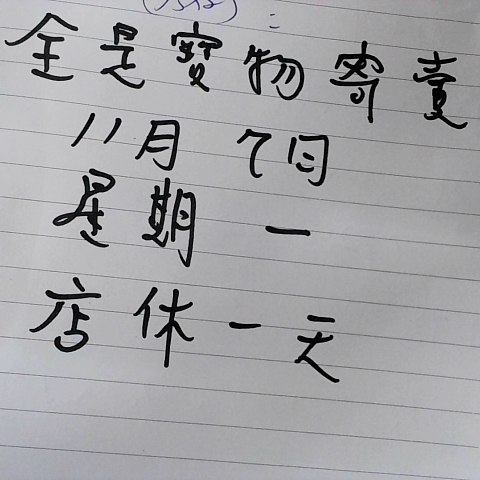 全是寶物寄賣
11月7日
星期一
店休一天